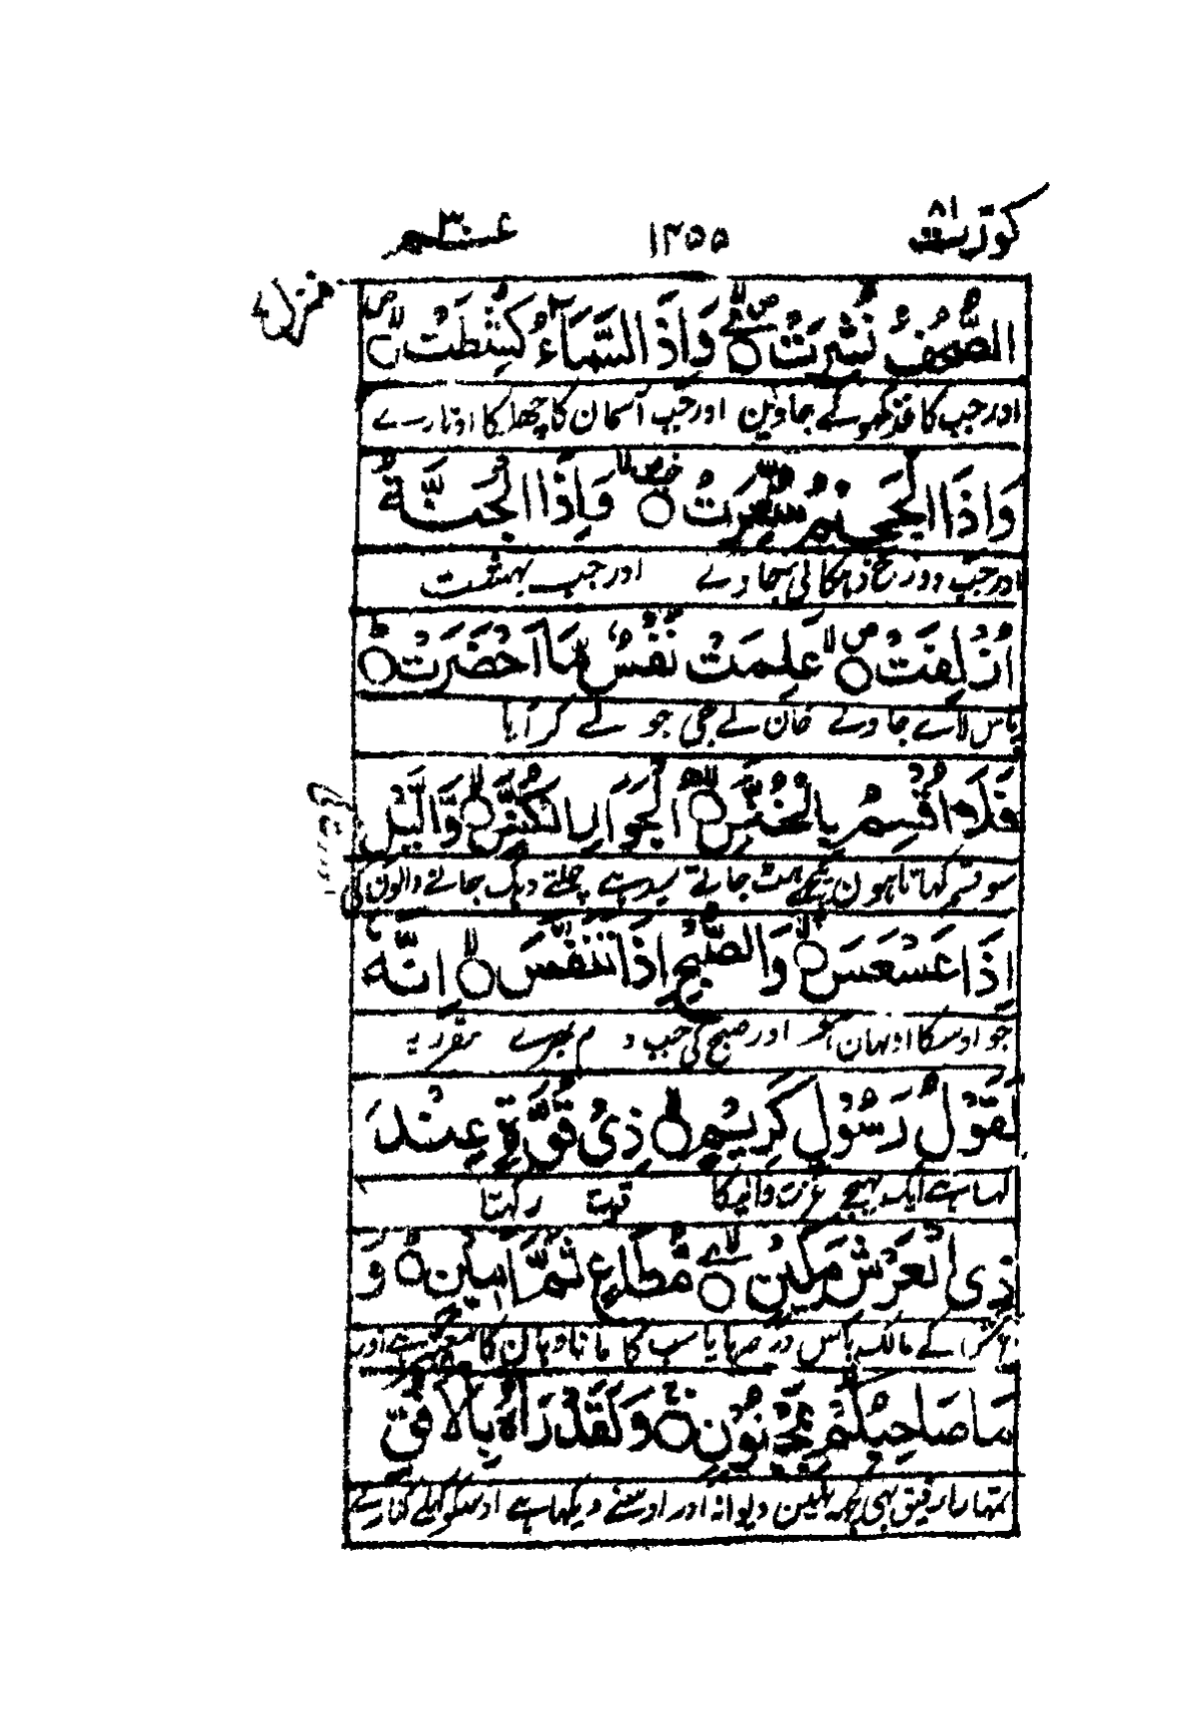 كورت ٨١ ١٢٥٥ عم ٣٠
منزل ٧
الصُّحُفُ نُشِرَتْ وَاِذَا السَّمَآءُ كُشِطَتْ
اور جب کاغذ کھولے جاوین اور جب آسمان کا چھلکا اوتارے
وَاِذَا الْجَحِيْمُ سُعِّرَتْ وَاِذَا الْجَنَّةُ
اور جب دوزخ دہکائی جاوے اور جب بہشت
اُزْلِفَتْ عَلِمَتْ نَفْسٌ مَّآ اَحْضَرَتْ
پاس لائے جاوے جان لے جی جو لے کر آیا
فَلَآ اُقْسِمُ بِالْخُنَّسِ الْجَوَارِ الْكُنَّسِ وَالَّيْلِ
سو قسم کہاتا ہون پیچھے ہٹ جاتے سیدھے چلتے دبک جانے والون کی
اِذَا عَسْعَسَ وَالصُّبْحِ اِذَا تَنَفَّسَ اِنَّهٗ
اور صبح کی جب دم بھرے مقرر یہ
لَقَوْلُ رَسُوْلٍ كَرِيْمٍ ذِيْ قُوَّةٍ عِنْدَ
کہا ہے ایک بھیجے عزت والیکا قوت رکہتا
ذِي الْعَرْشِ مَكِيْنٍ مُّطَاعٍ ثَمَّ اَمِيْنٍ وَ
کے مالک پاس درجہ پایا سب کا مانا وہان کا معتبر ہے اور
مَا صَاحِبُكُمْ بِمَجْنُوْنٍ وَلَقَدْ رَاٰهُ بِالْاُفُقِ
تمہارا رفیق بھی کچھ نہین دیوانہ اور اوسنے دیکہا ہے اوسکو کھلے کنارے